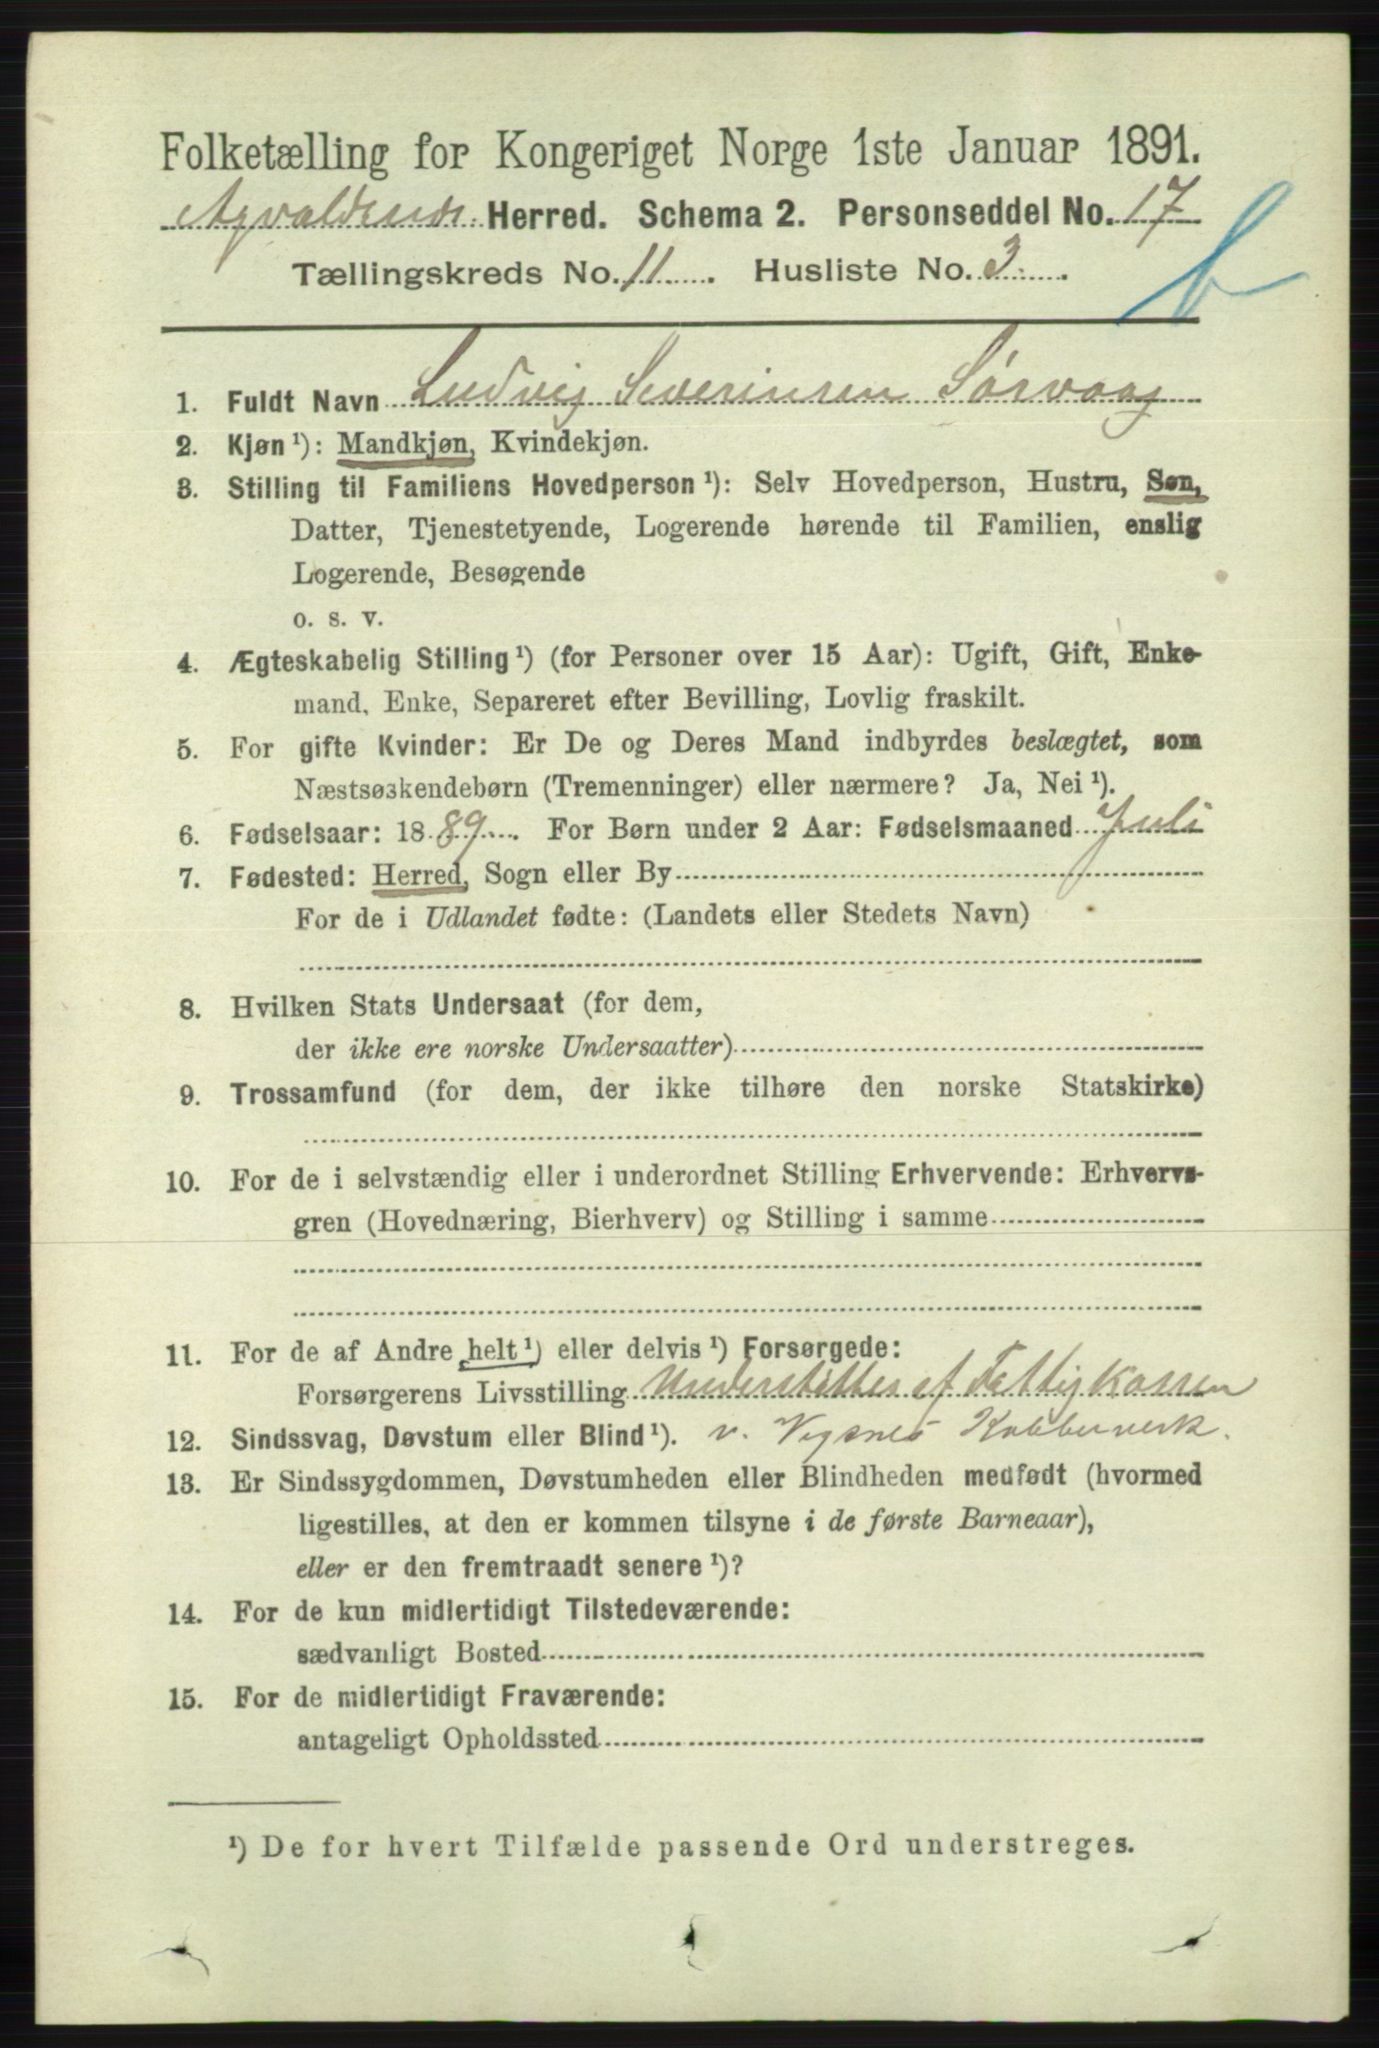 Folketælling for Kongeriget Norge 1ste Januar 1891.
Avaldsnes Herred. Schema 2. Personseddel No. 17
Tællingskreds No. 11. Husliste No. 3.
b
1. Fuldt Navn Ludvig Severinsen Sørvaag
2. Kjøn ¹): Mandkjøn, Kvindekjøn.
3. Stilling til Familiens Hovedperson ¹): Selv Hovedperson, Hustru, Søn,
Datter, Tjenestetyende, Logerende hørende til Familien, enslig
Logerende, Besøgende
o. s. v.
4. Ægteskabelig Stilling ¹) (for Personer over 15 Aar): Ugift, Gift, Enke-
mand, Enke, Separeret efter Bevilling, Lovlig fraskilt.
5. For gifte Kvinder: Er De og Deres Mand indbyrdes beslægtet, som
Næstsøskendebørn (Tremenninger) eller nærmere? Ja, Nei ¹).
6. Fødselsaar: 1889. For Børn under 2 Aar: Fødselsmaaned Juli
7. Fødested: Herred, Sogn eller By
For de i Udlandet fødte: (Landets eller Stedets Navn)
8. Hvilken Stats Undersaat (for dem,
der ikke ere norske Undersaatter)
9. Trossamfund (for dem, der ikke tilhøre den norske Statskirke)
10. For de i selvstændig eller i underordnet Stilling Erhvervende: Erhvervs-
gren (Hovednæring, Bierhverv) og Stilling i samme
11. For de af Andre helt ¹) eller delvis ¹) Forsørgede:
Forsørgerens Livsstilling Understøttes af Fattigkassen
12. Sindssvag, Døvstum eller Blind ¹). v. Vigsnes Kobberverk.
13. Er Sindssygdommen, Døvstumheden eller Blindheden medfødt (hvormed
ligestilles, at den er kommen tilsyne i de første Barneaar),
eller er den fremtraadt senere ¹)?
14. For de kun midlertidigt Tilstedeværende:
sædvanligt Bosted
15. For de midlertidigt Fraværende:
antageligt Opholdssted
¹) De for hvert Tilfælde passende Ord understreges.